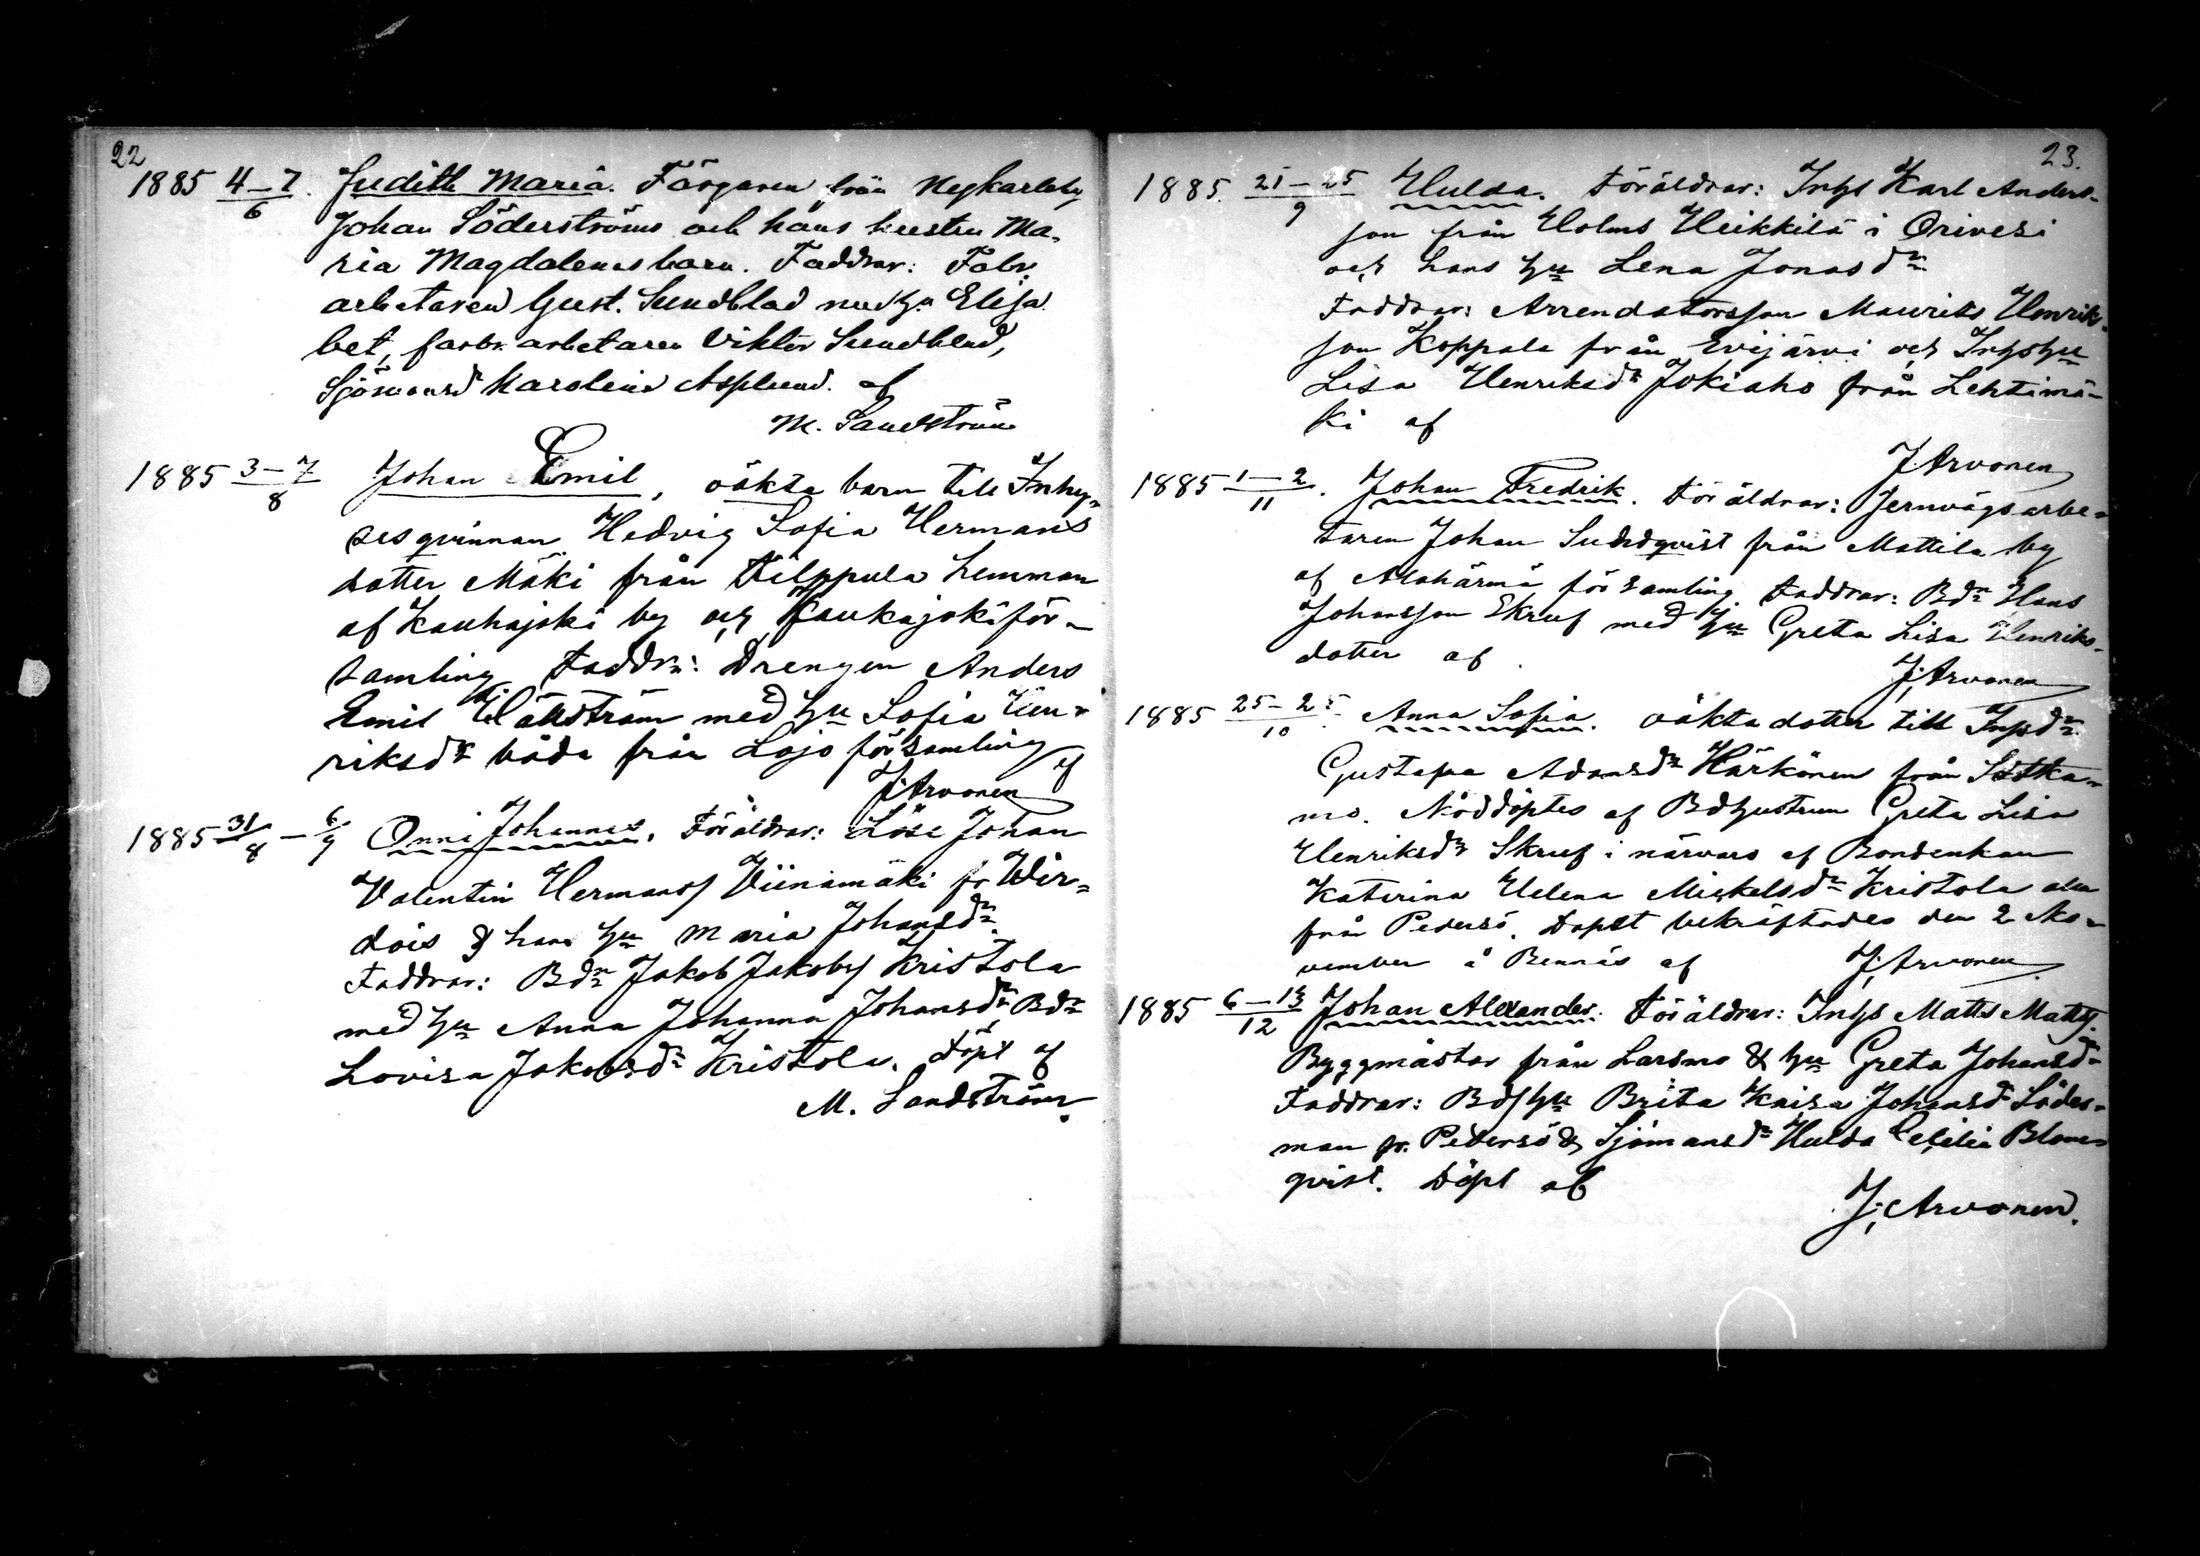 22
1885 4–7/6. Judith Maria. Färgaren från Nykarleby
Johan Söderströms och hans hustru Ma-
ria Magdalenas barn. Faddrar: Fabr.
arbetaren Gust. Sundblad med h. Elisa
bet, fabr. arbetaren Viktor Sundblad,
Sjömansdr Karolina Asplund. af
M. Sandström
1885 3–7/8 Johan Emil, oäkta barn till Inhy-
sesqvinnan Hedvig Sofia Hermans
dotter Mäki från Filppula hemman
af Kauhajoki by och Kauhajoki för-
samling Faddr.: Drengen Anders
Emil Hällström med hu Sofia Hen-
riksdr båda från Lojo församling af
J. Arvonen
1885 31/8 – 6/9 Onni Johannes. Föräldrar: Löse Johan
Valentin Hermanss Viinamäki fr Wir-
dois & hans hu Maria Johansdr.
Faddrar: Bdn Jakob Jakobss Kristola
med hu Anna Johanna Johansdr, Bdr
Lovisa Jakobsdr Kristola. Döpt af
M. Sandström.
23.
1885. 21–25/9 Hulda. Föräldrar: Inhs Karl Anders-
son från Holms Heikkilä i Orivesi
och hans hu Lena Jonasdr
Faddrar: Arrendatorsson Maurits Henrik-
son Koppala från Evijärvi och Inhshu
Lisa Henriksdr Jokiaho från Lehtimä-
ki af
J. Arvonen
1885 1–2/11. Johan Fredrik. Föräldrar: Jernvägsarbe-
taren Johan Sundqvist från Mattila by
af Alahärmä församling. Faddrar: Bdn Hans
Johansson Skruf med hu Greta Lisa Henriks-
dotter af
J. Arvonen
1885 25–25/10 Anna Sofia. oäkta dotter till Inhsdr
Gustafva Adamsdr Härkönen från Sotka-
mo. Nöddöptes af Bdhustrun Greta Lisa
Henriksdr Skruf i närvaro af Bondenkan
Katerina Helena Mickelsdr Kristola
från Pedersö. Dopet bekräftades den 2 No-
vember å Bennäs af J. Arvonen
1885 6–13/12 Johan Alexander. Föräldrar: Inhs Matts Mattss.
Byggmästar från Larsmo & hu Greta Johansdr
Faddrar: Bdshu Brita Kaisa Johansdr Söder-
man fr. Pedersö & Sjömansdr Hulda Cecilia Blom-
qvist. Döpt af
J. Arvonen.